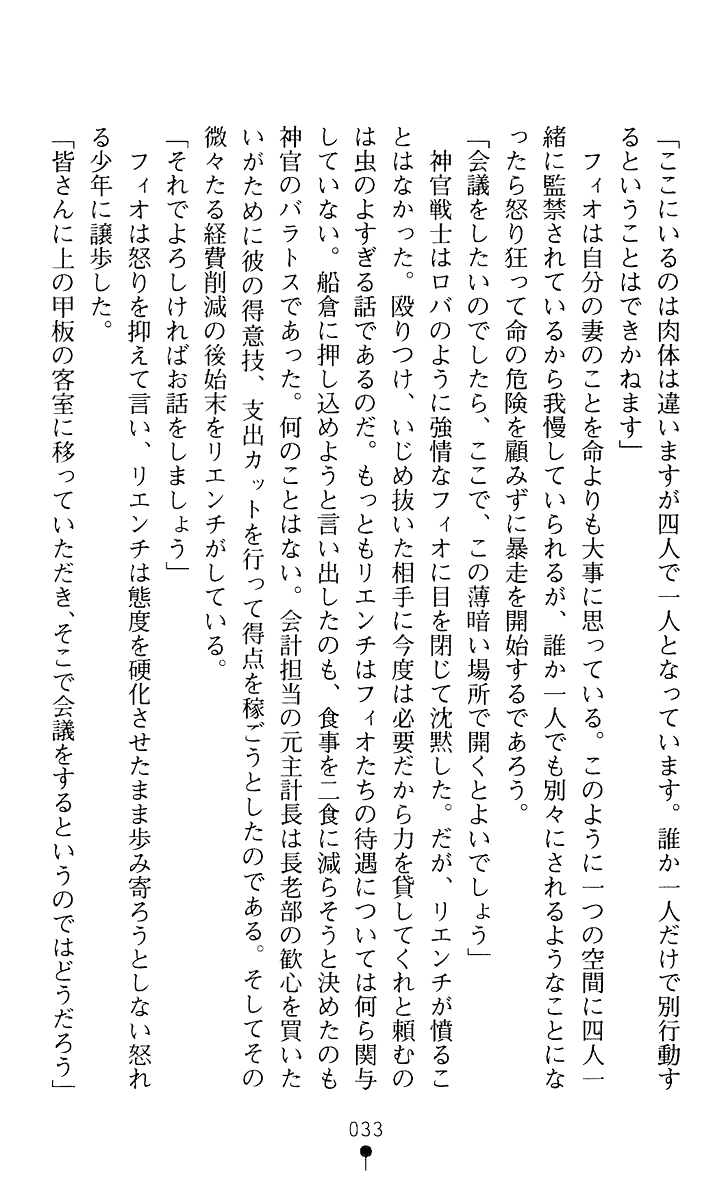 「ここにいるのは肉体は違いますが四人で一人となっています。誰か一人だけで別行動す
るということはできかねます」
　フィオは自分の妻のことを命よりも大事に思っている。このように一つの空間に四人一
緒に監禁されているから我慢していられるが、誰か一人でも別々にされるようなことにな
ったら怒り狂って命の危険を顧みずに暴走を開始するであろう。
「会議をしたいのでしたら、ここで、この薄暗い場所で開くとよいでしょう」
　神官戦士はロバのように強情なフィオに目を閉じて沈黙した。だが、リエンチが憤るこ
とはなかった。殴りつけ、いじめ抜いた相手に今度は必要だから力を貸してくれと頼むの
は虫のよすぎる話であるのだ。もっともリエンチはフィオたちの待遇については何ら関与
していない。船倉に押し込めようと言い出したのも、食事を二食に減らそうと決めたのも
神官のバラトスであった。何のことはない。会計担当の元主計長は長老部の歓心を買いた
いがために彼の得意技、支出カットを行って得点を稼ごうとしたのである。そしてその
微々たる経費削減の後始末をリエンチがしている。
「それでよろしければお話をしましょう」
　フィオは怒りを抑えて言い、リエンチは態度を硬化させたまま歩み寄ろうとしない怒れ
る少年に譲歩した。
「皆さんに上の甲板の客室に移っていただき、そこで会議をするというのではどうだろう」
033